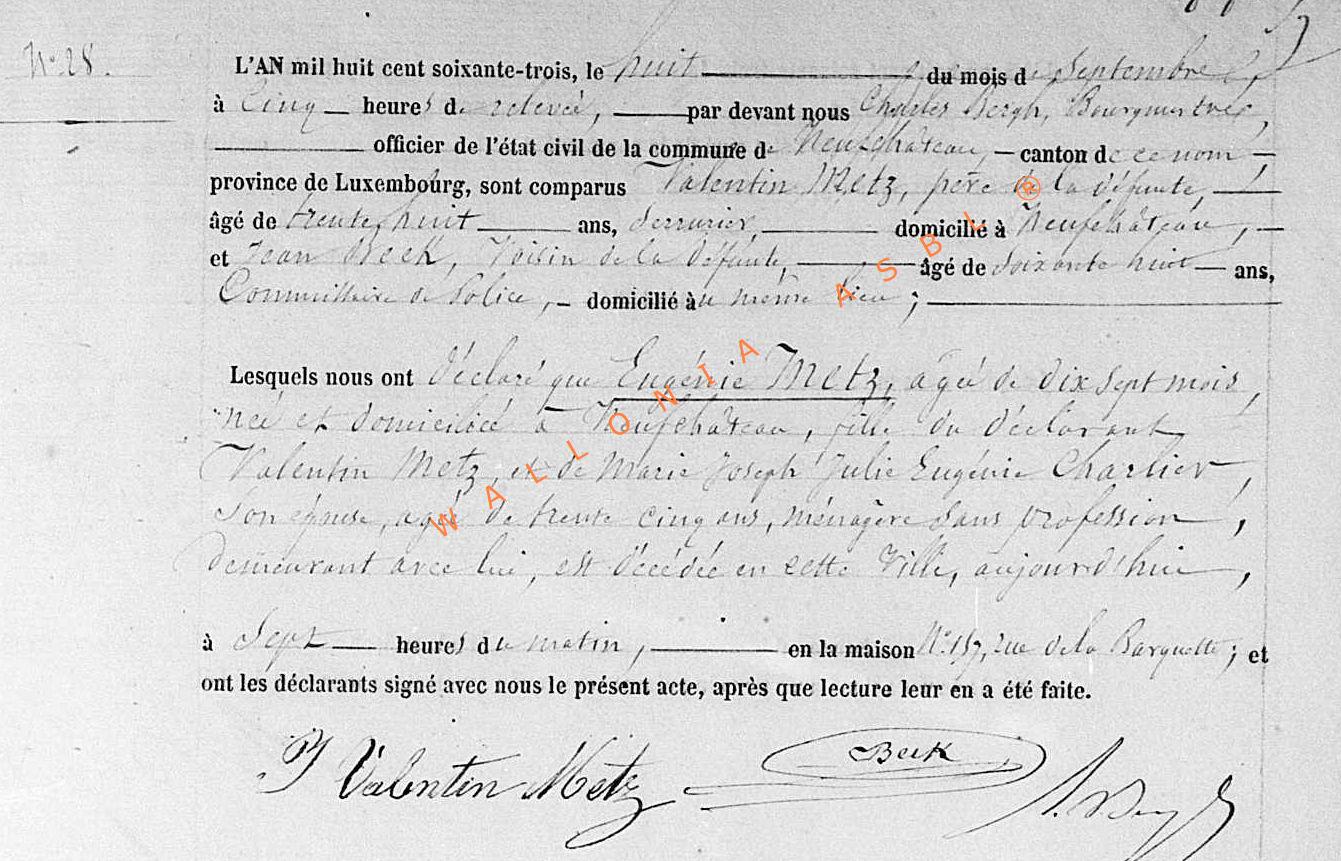 N° 28.
L'AN mil huit cent soixante-trois, le huit du mois de Septembre,
à Cinq heures de relevée, par devant nous Charles Bergh, Bourgmestre,
officier de l'état civil de la commune de Neufchâteau, canton de ce nom,
province de Luxembourg, sont comparus Valentin Metz, père de la défunte,
âgé de trente huit ans, serrurier, domicilié à Neufchâteau,
et Jean Beck, Voisin de la défunte, âgé de soixante huit ans,
Commissaire de Police, domicilié au même lieu;
Lesquels nous ont déclaré que Eugénie Metz, agée de dix sept mois,
née et domiciliée à Neufchâteau, fille du déclarant
Valentin Metz, et de Marie Joseph Julie Eugénie Charlier,
son épouse, agée de trente cinq ans, ménagère sans profession,
demeurant avec lui, est décédée en cette Ville, aujourd'hui,
à Sept heures du matin, en la maison N° 157, rue de la Barquette; et
ont les déclarants signé avec nous le présent acte, après que lecture leur en a été faite.
Valentin Metz
Beck
WALLONIA ASBL ®